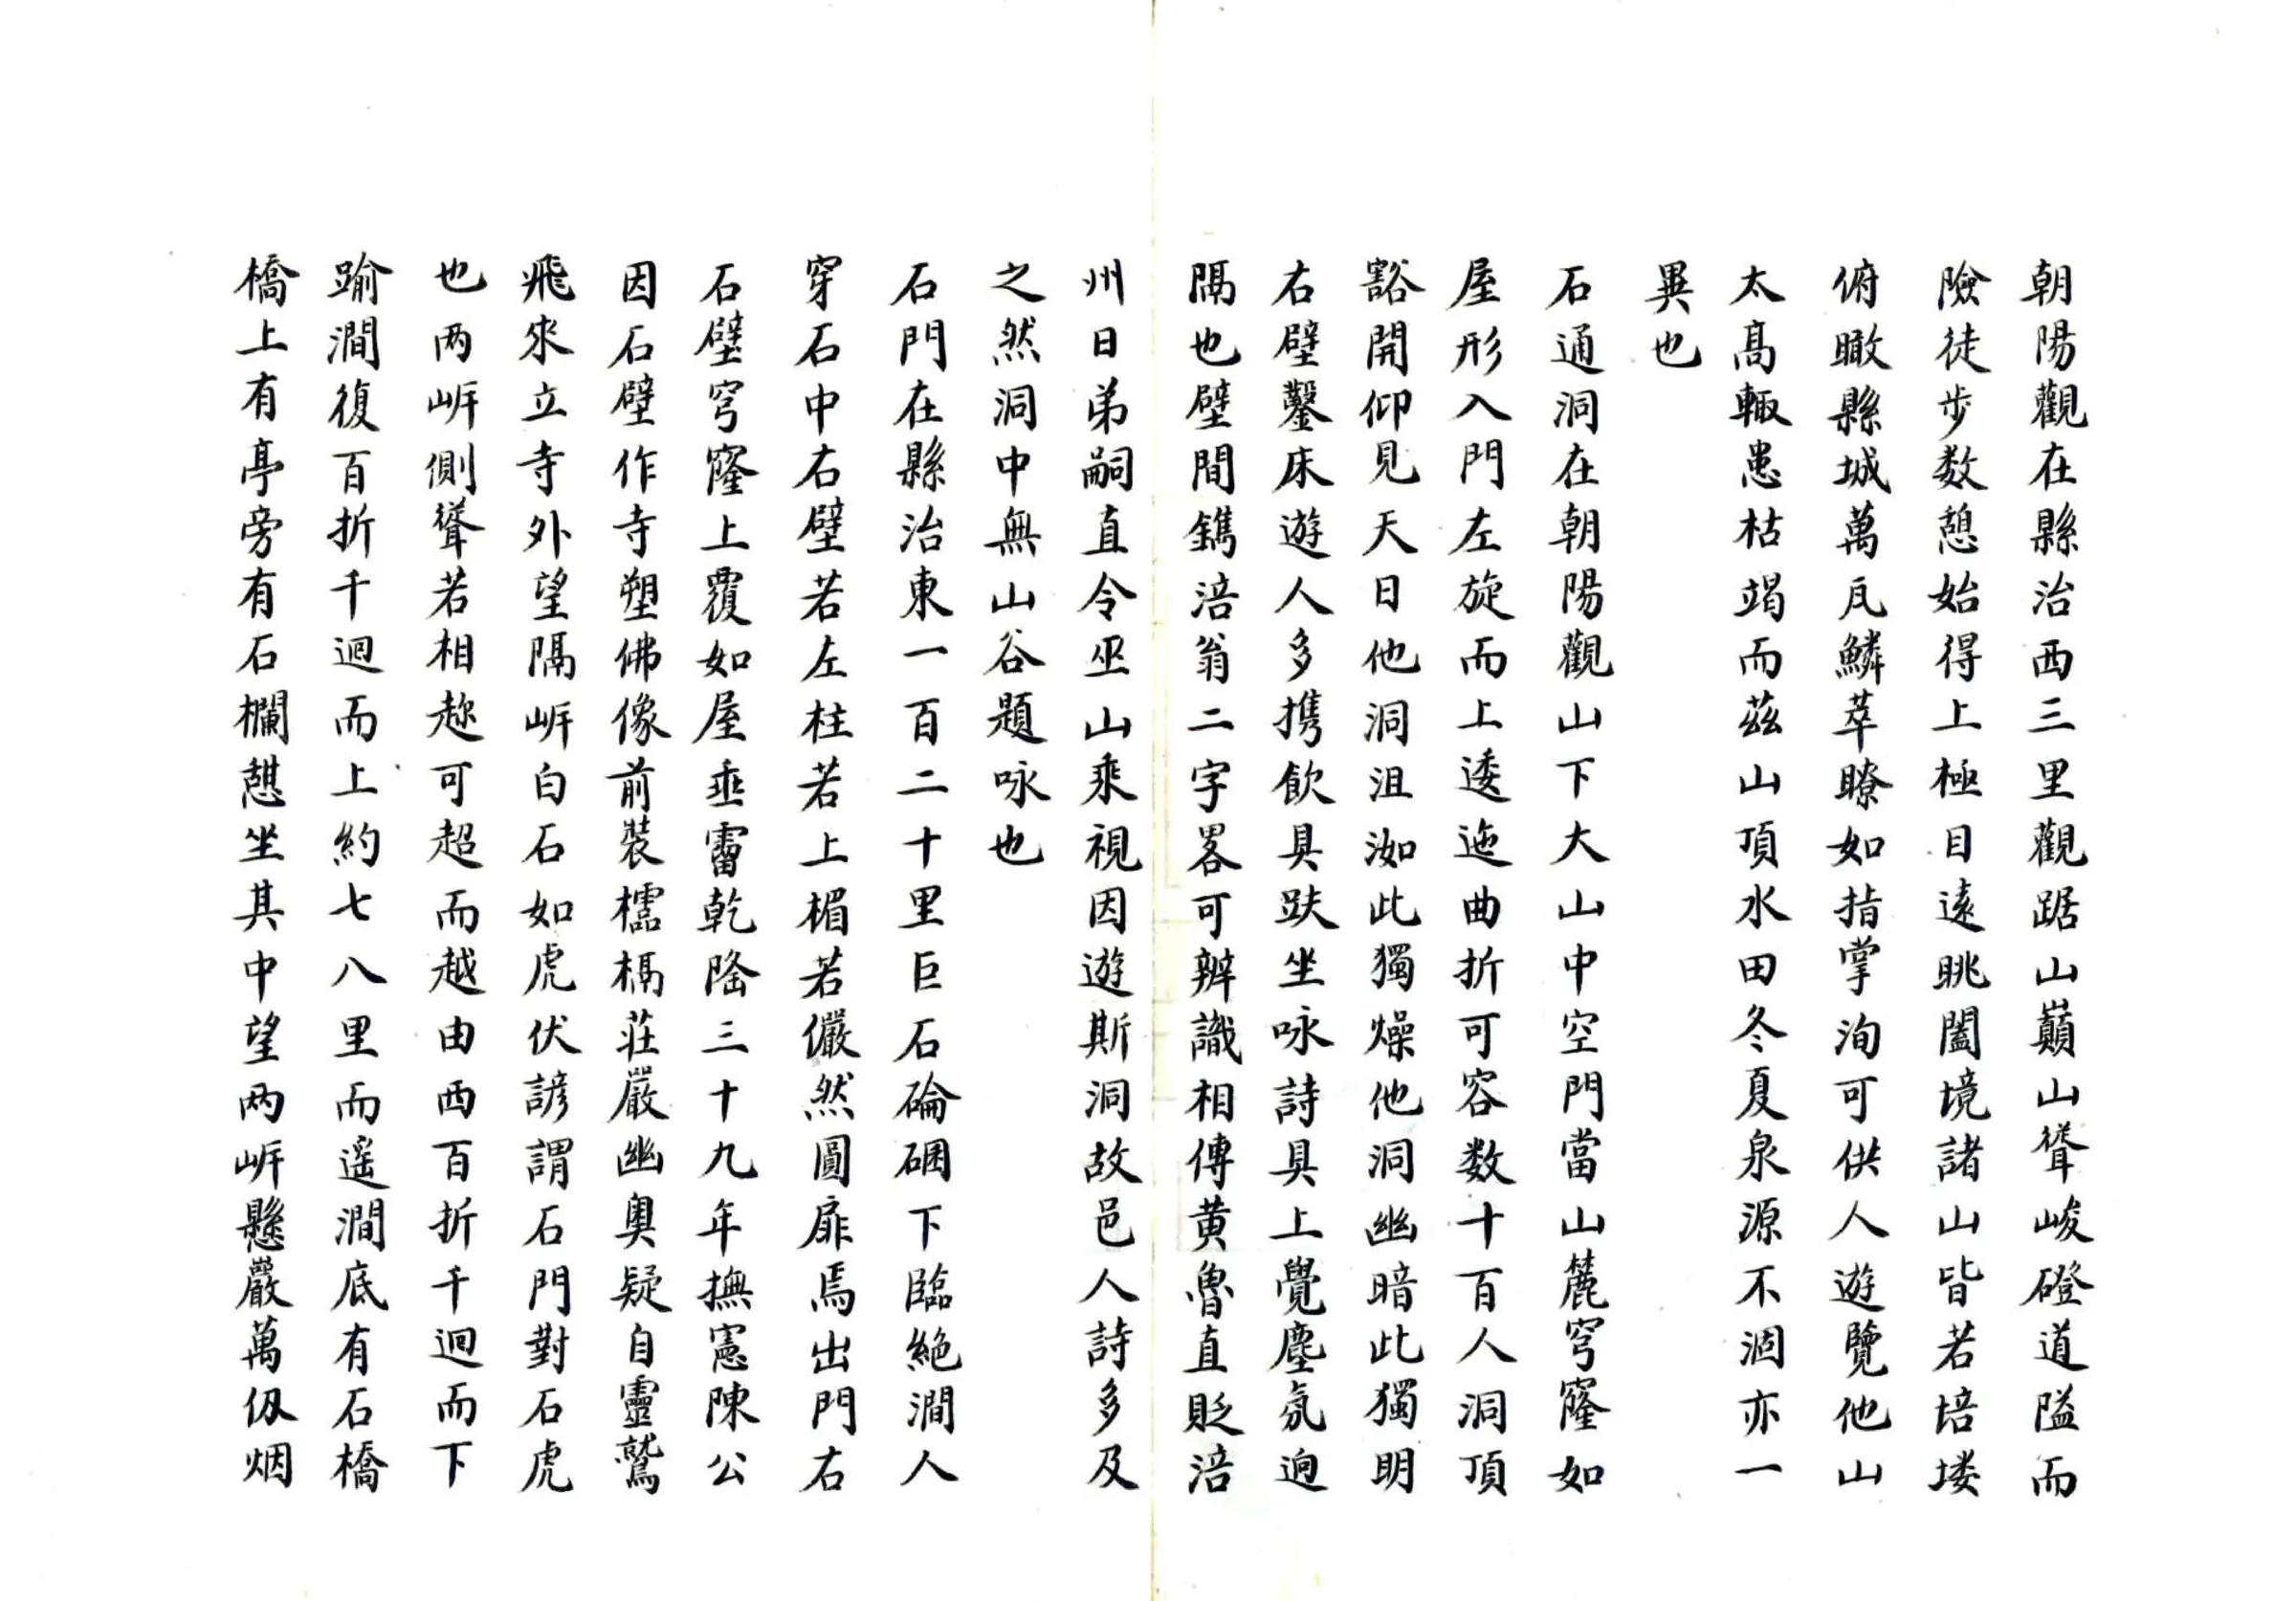 朝陽觀在縣治西三里觀踞山巔山聳峻磴道隘而
險徒步数憩始得上極目遠眺闔境諸山皆若培塿
俯瞰縣城萬瓦鱗萃瞭如指掌洵可供人遊覽他山
太高輙患枯竭而茲山頂水田冬夏泉源不涸亦一
異也
石通洞在朝陽觀山下大山中空門當山麓穹窿如
屋形入門左旋而上逶迤曲折可容数十百人洞頂
豁開仰見天日他洞沮洳此獨燥他洞幽暗此獨明
右壁鑿床遊人多携飲具趺坐咏詩具上覺塵氛逈
隔也壁間鐫涪翁二字畧可辨識相傳黄魯直貶涪
州日弟嗣直令巫山乘視因遊斯洞故邑人詩多及
之然洞中無山谷題咏也
石門在縣治東一百二十里巨石碖硱下臨絶澗人
穿石中右壁若左柱若上楣若儼然圓扉焉出門右
石壁穹窿上覆如屋垂霤乾隆三十九年撫憲陳公
因石壁作寺塑佛像前裝櫺槅莊嚴幽奥疑自靈鷲
飛來立寺外望隔岍白石如虎伏諺謂石門對石虎
也两岍側聳若相趂可超而越由西百折千迴而下
踰澗復百折千迴而上約七八里而遥澗底有石橋
橋上有亭旁有石欄憇坐其中望两岍懸巖萬仭烟